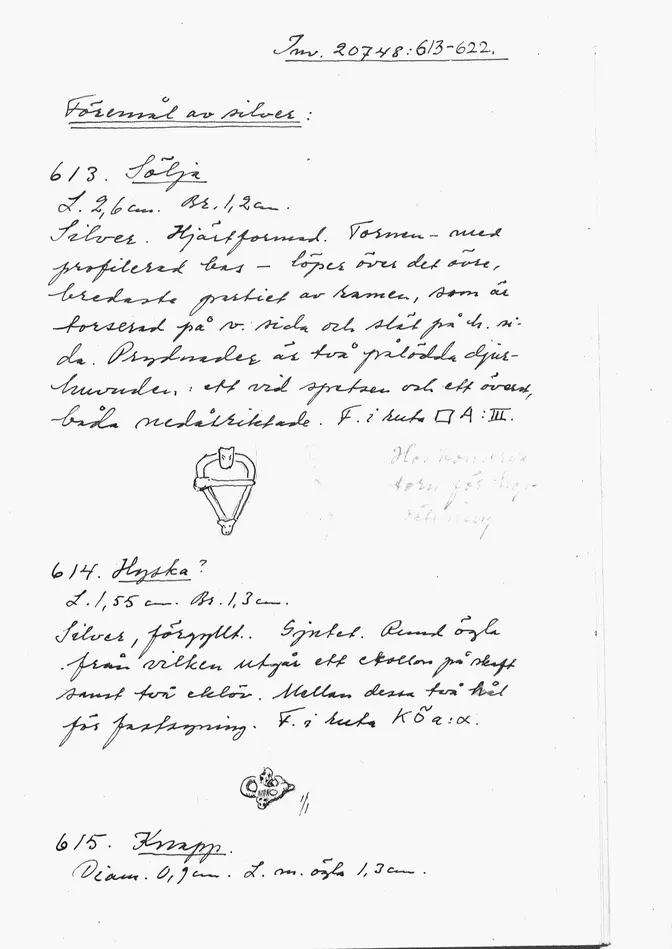 Inv. 20748:613-622.
Föremål av silver:
613. Sölja
L. 2,6 cm. Br. 1,2 cm.
Silver. Hjärtformad. Tornen - med
profilerad bas - löper över det övre,
bredaste partiet av ramen, som är
torserad på v. sida och slät på h. si-
da. Prydnader är två pålödda djur-
huvuden: ett vid spetsen och ett överst,
båda nedåtriktade. F. i ruta □ A:III.
torn för
614. Hyska?
L. 1,55 cm. Br. 1,3 cm.
Silver, förgyllt. Gjutet. Rund ögla
från vilken utgår ett ekollon på skaft
samt två eklöv. Mellan dessa två hål
för fastsyning. F. i ruta KÖa:α.
1/1
615. Knapp.
Diam. 0,9 cm. L. m. ögla 1,3 cm.